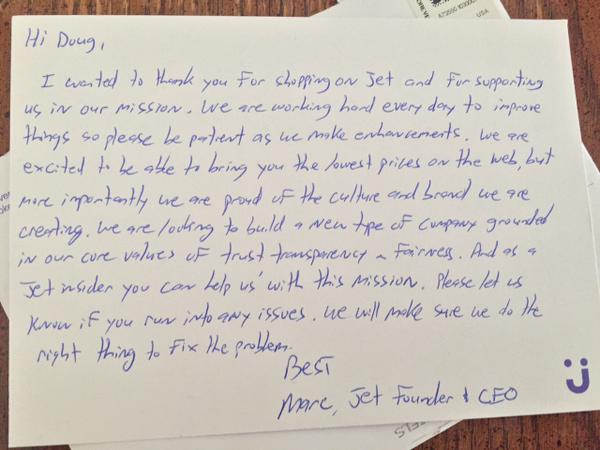 USA
Hi Doug,
I wanted to thank you for shopping on Jet and for supporting
us in our mission. We are working hard every day to improve
things so please be patient as we make enhancements. We are
excited to be able to bring you the lowest prices on the web, but
more importantly we are proud of the culture and brand we are
creating. We are looking to build a new type of company grounded
in our core values of trust transparency & fairness. And as a
Jet insider you can help us with this mission. Please let us
know if you run into any issues. We will make sure we do the
right thing to fix the problem.
Best
Marc, Jet Founder & CEO